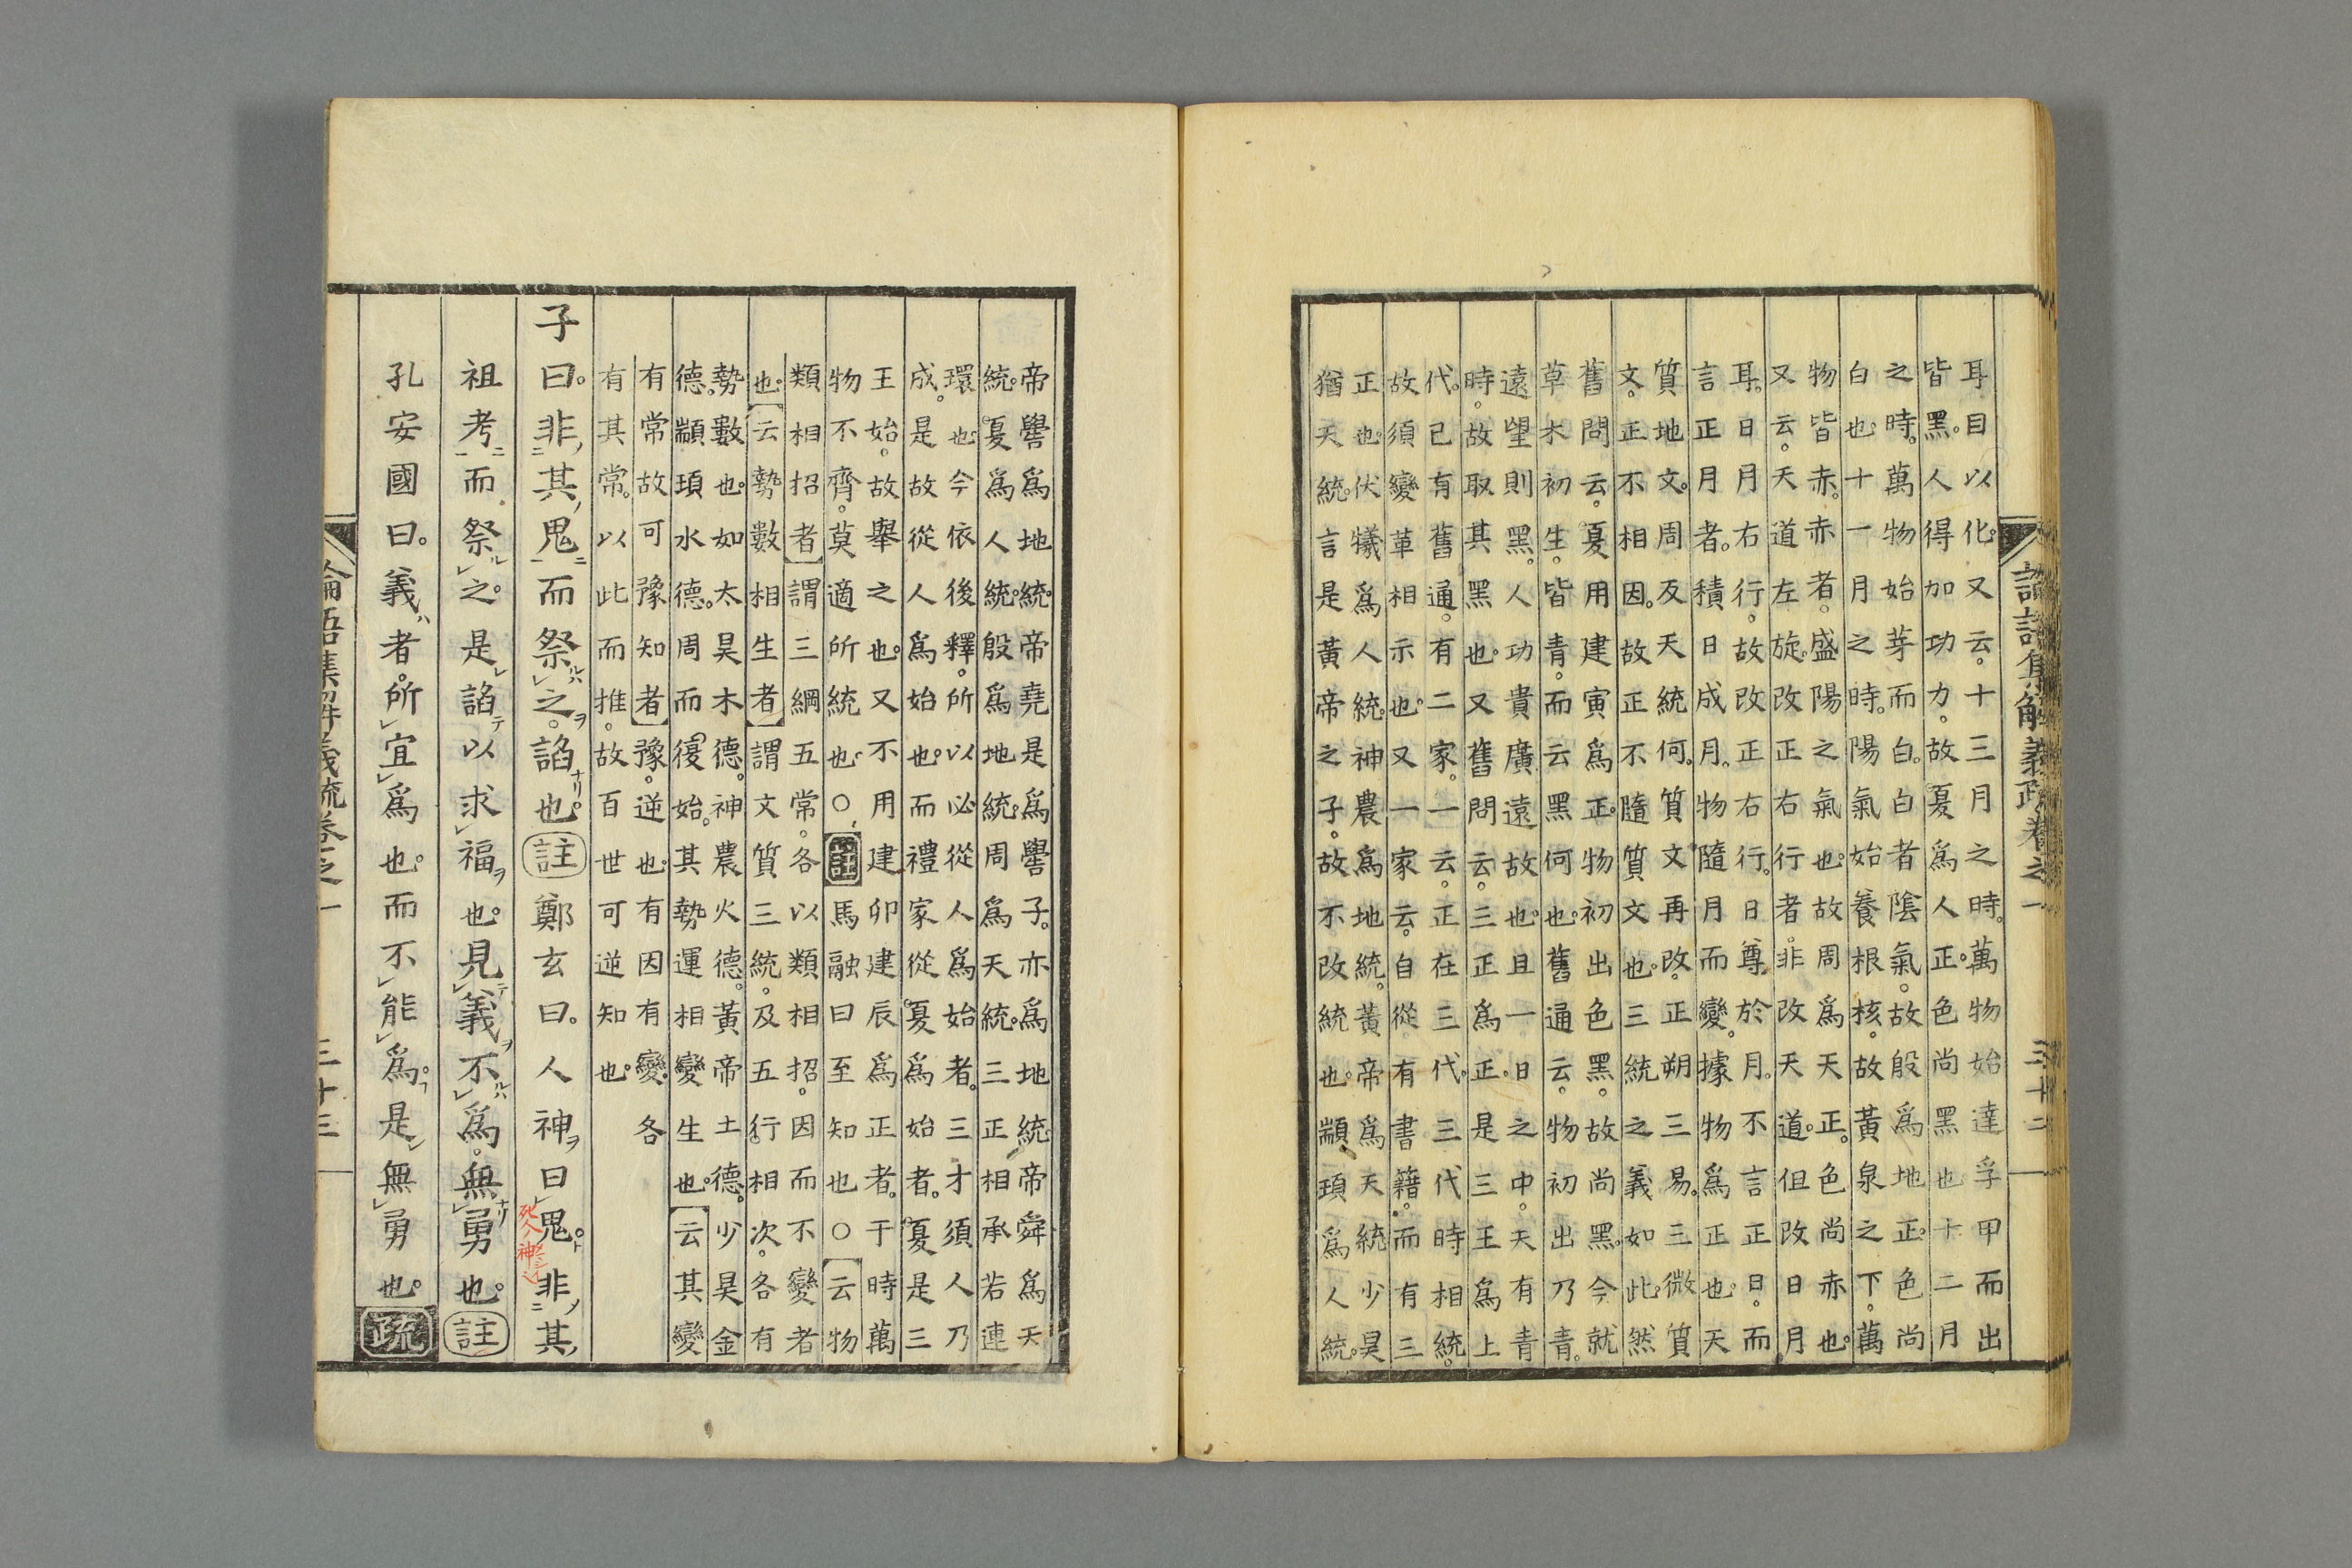 耳目以化。又云。十三月之時。萬物始達孚甲而出
皆黑。人得加功力。故夏爲人正。色尚黑也十二月
之時。萬物始芽而白。白者陰氣。故殷爲地正。色尚
白也。十一月之時。陽氣始養根核。故黃泉之下。萬
物皆赤。赤者。盛陽之氣也。故周爲天正。色尚赤也。
又云。天道左旋。改正右行者。非改天道。但改日月
耳。日月右行。故改正右行。日尊於月。不言正日。而
言正月者。積日成月。物隨月而變。據物爲正也。天
質地文。周反天統何。質文再改。正朔三易。三微質
文。正不相因。故正不隨質文也。三統之義如此。然
舊問云。夏用建寅爲正。物初出色黑。故尚黑。今就
草木初生。皆青。而云黑何也。舊通云。物初出乃青。
遠望則黑。人功貴廣遠故也。且一日之中。天有青
時。故取其黑也。又舊問云。三正爲正。是三王爲上
代。已有舊通。有二家。一云。正在三代。三代時相統。
故須變革相示也。又一家云。自從有書籍。而有三
正也。伏犧爲人統。神農爲地統。黃帝爲天統少昊
猶天統。言是黃帝之子。故不改統也。顓頊爲人統。
論語集解義疏卷之一　三十二
帝嚳爲地統。帝堯是爲嚳子。亦爲地統。帝舜爲天
統。夏爲人統。殷爲地統。周爲天統。三正相承若連
環也今依後釋。所以必從人爲始者。三才須人乃
成。是故從人爲始也。而禮家從夏爲始者。夏是三
王始。故舉之也。又不用建卯建辰爲正者。于時萬
物不齊。莫適所統也。○註馬融曰至知也○云物
類相招者謂三綱五常。各以類相招。因而不變者
也。云勢數相生者謂文質三統。及五行相次。各有
勢數也。如太昊木德。神農火德。黃帝土德。少昊金
德。顓頊水德。周而復始。其勢運相變生也。云其變
有常故可豫知者豫。逆也有因有變。各
有其常。以此而推。故百世可逆知也。
子曰。非其鬼而祭之。諂也。註鄭玄曰。人神曰鬼。非其
祖考而祭之。是諂以求福也。見義不爲。無勇也。註
孔安國曰。義者。所宜爲也。而不能爲。是無勇也。疏
論語集解義疏卷之一　三十三